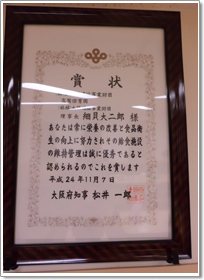 賞状
理事長 細貝大二郎 様
あなたは常に栄養の改善と食品衛
生の向上に努力されその給食施設
の維持管理は誠に優秀であると
認められるのでこれを賞します
平成24年11月7日
大阪府知事 松井一郎